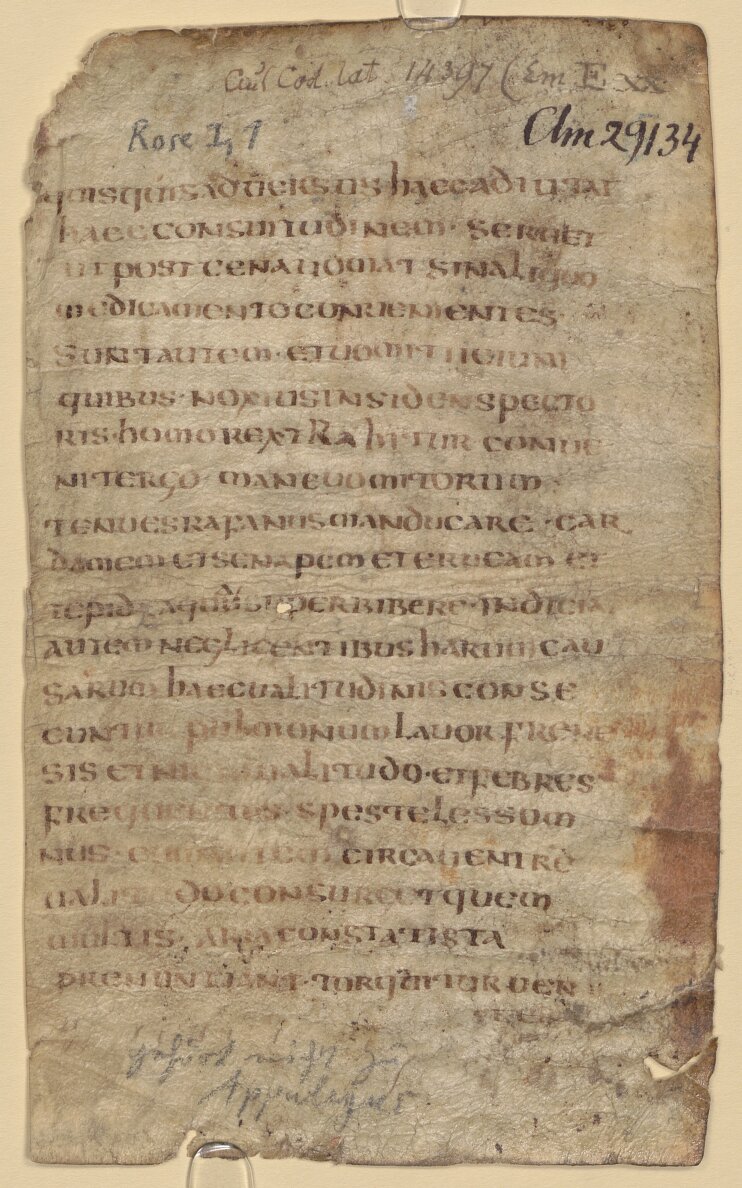 Cod. lat. 14397 (Em. E xx
Rose I, 1
Clm 29134
quisquis aduersus haec adiutat
haec consuitudinem · seruet
ut post cena uomat sin aliquo
medicamento conuenientes ·
sunt autem · et uomi
quibus · noxius insidens pecto
ris · homo
ni tergo · mane uomitorium ·
tenues rafanus manducare · car
damem et senapem et erucam et
tepid aqua super bibere · indicia
autem neglicentibus harum cau
sarum haec ualitudinis conse
cuntur pulmonum lauor frene
sis et ualitudo · et febres
frequentes · spes te les som
nus · circa uenire
ualitudo consurget quem
multis · constat ista
prenuntiant · torquitur uen
gehört nicht zu
Appuleius